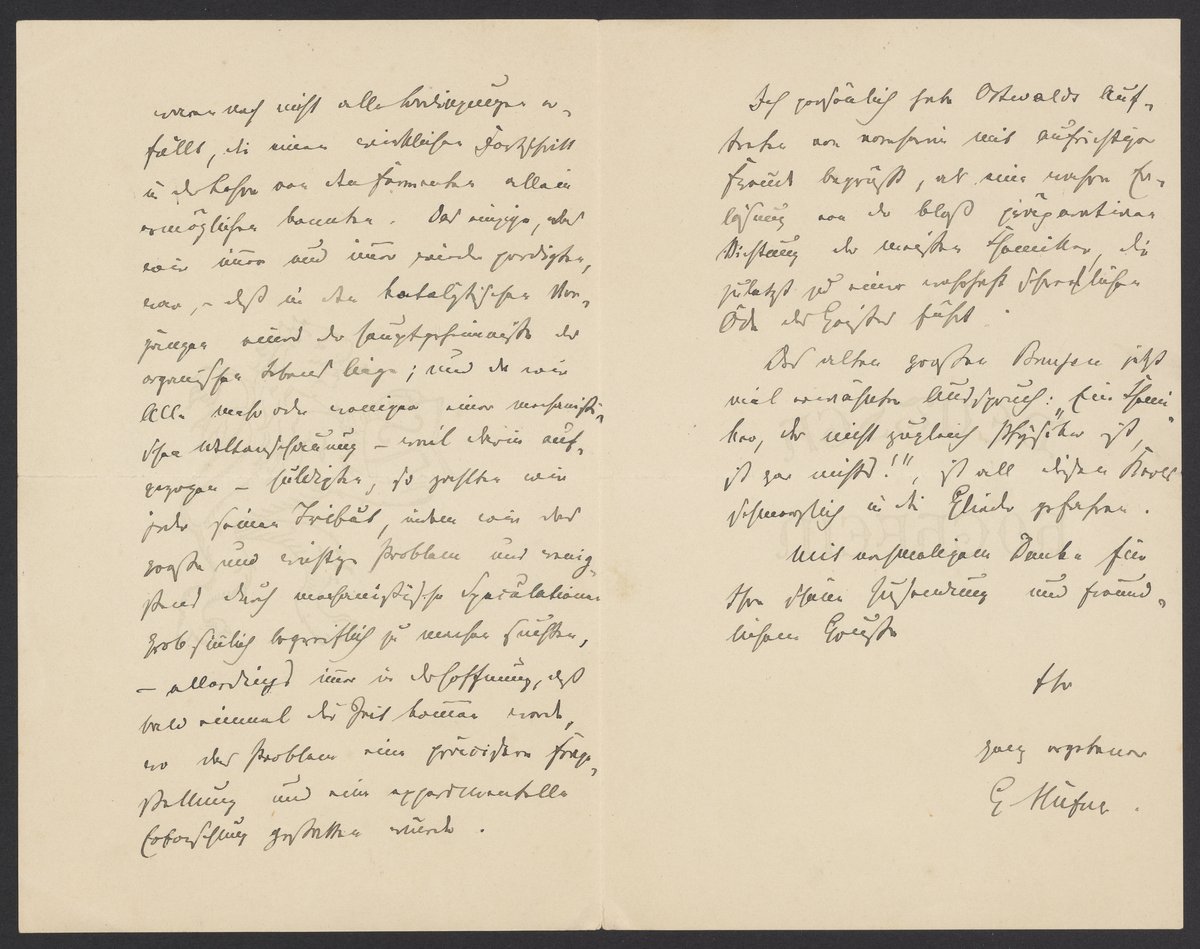 waren noch nicht alle Bedingungen er-
füllt, die einen wirklichen Fortschritt
in der Lehre von den Fermenten allein
ermöglichen konnten. Das einzige, was
wir immer und immer wieder predigten,
war, – daß in den katalytischen Vor-
gängen eines der Hauptgeheimnisse des
organischen Lebens liege; und da wir
Alle mehr oder weniger einer mechanisti-
schen Weltanschauung – weil darin auf-
gezogen – huldigten, so zahlten wir
jeder seinen Tribut, indem wir das
große und wichtige Problem uns wenig-
stens durch mechanistische Speculationen
grob sinnlich begreiflich zu machen suchten,
– allerdings immer in der Hoffnung, daß
bald einmal die Zeit kommen werde,
wo das Problem eine präcisere Frage-
stellung und eine experimentelle
Erforschung gestatten würde.
Ich persönlich habe Ostwalds Auf-
treten von vornherein mit aufrichtiger
Freude begrüßt, als eine wahre Er-
lösung von der bloß präparativen
Richtung der meisten Chemiker, die
zuletzt zu einer wahrhaft schrecklichen
Öde des Geistes führt.
Des alten großen Bunsen jetzt
viel erwähnter Ausspruch: „Ein Chemi-
ker, der nicht zugleich Physiker ist,
ist gar nichts!", ist all diesen Kerls
schmerzlich in die Glieder gefahren.
Mit nochmaligem Danke für
Ihre schöne Zusendung und freund-
lichem Gruße
Ihr
ganz ergebener
G Hüfner.